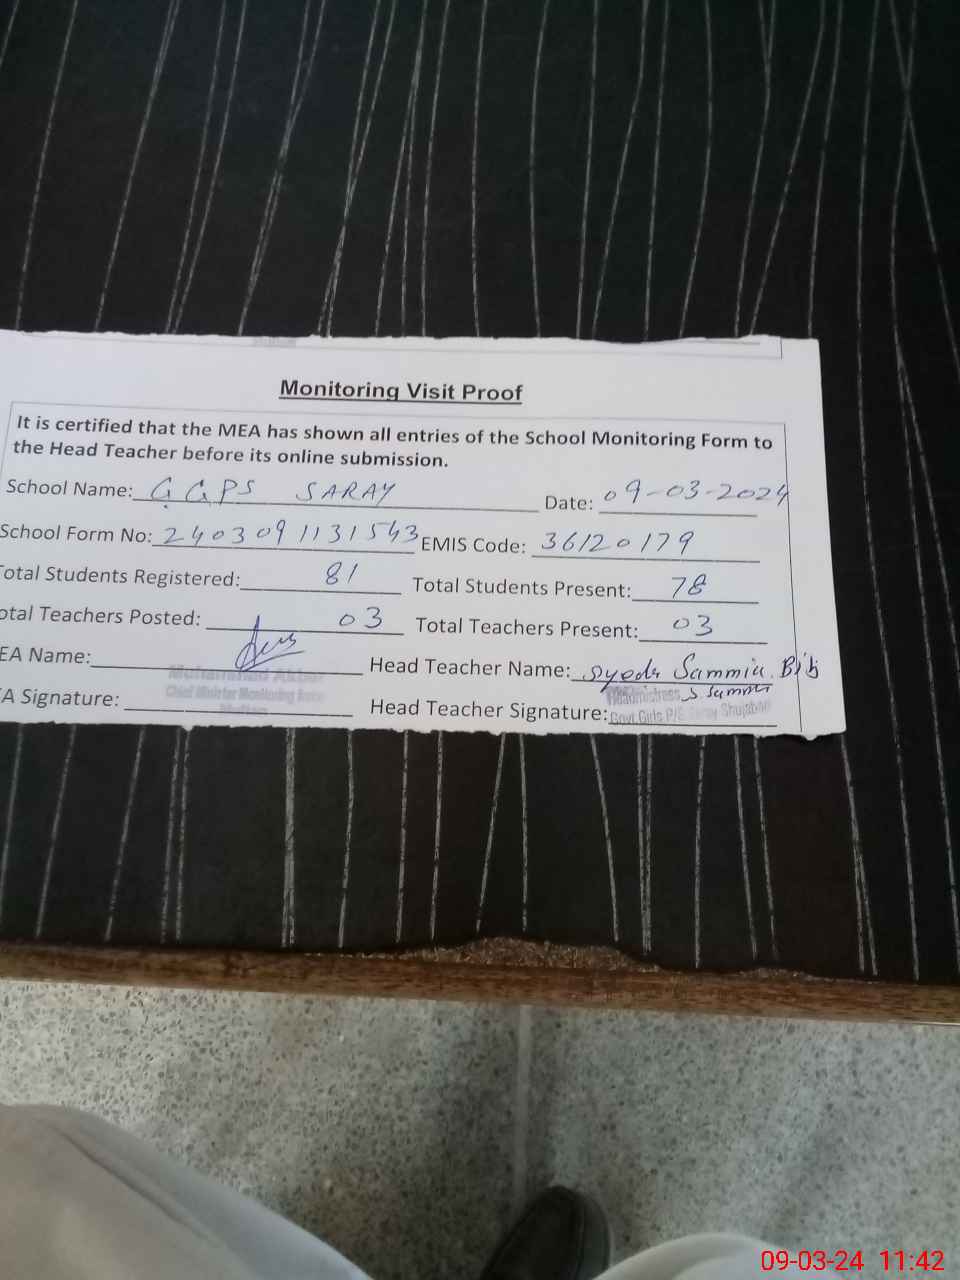 Monitoring Visit Proof
It is certified that the MEA has shown all entries of the School Monitoring Form to
the Head Teacher before its online submission.
School Name: GGPS SARAY Date: 09-03-2024
School Form No: 2403091131543 EMIS Code: 36120179
Total Students Registered: 81 Total Students Present: 78
otal Teachers Posted: 03 Total Teachers Present: 03
EA Name: Head Teacher Name: Syeda Sammia Bibi
Muhammad Akbar
Chief Minister Monitoring Force
Multan
A Signature: Head Teacher Signature: S Sammia
Headmistress
Govt. Girls P/S Saray Shujabad
09-03-24 11:42